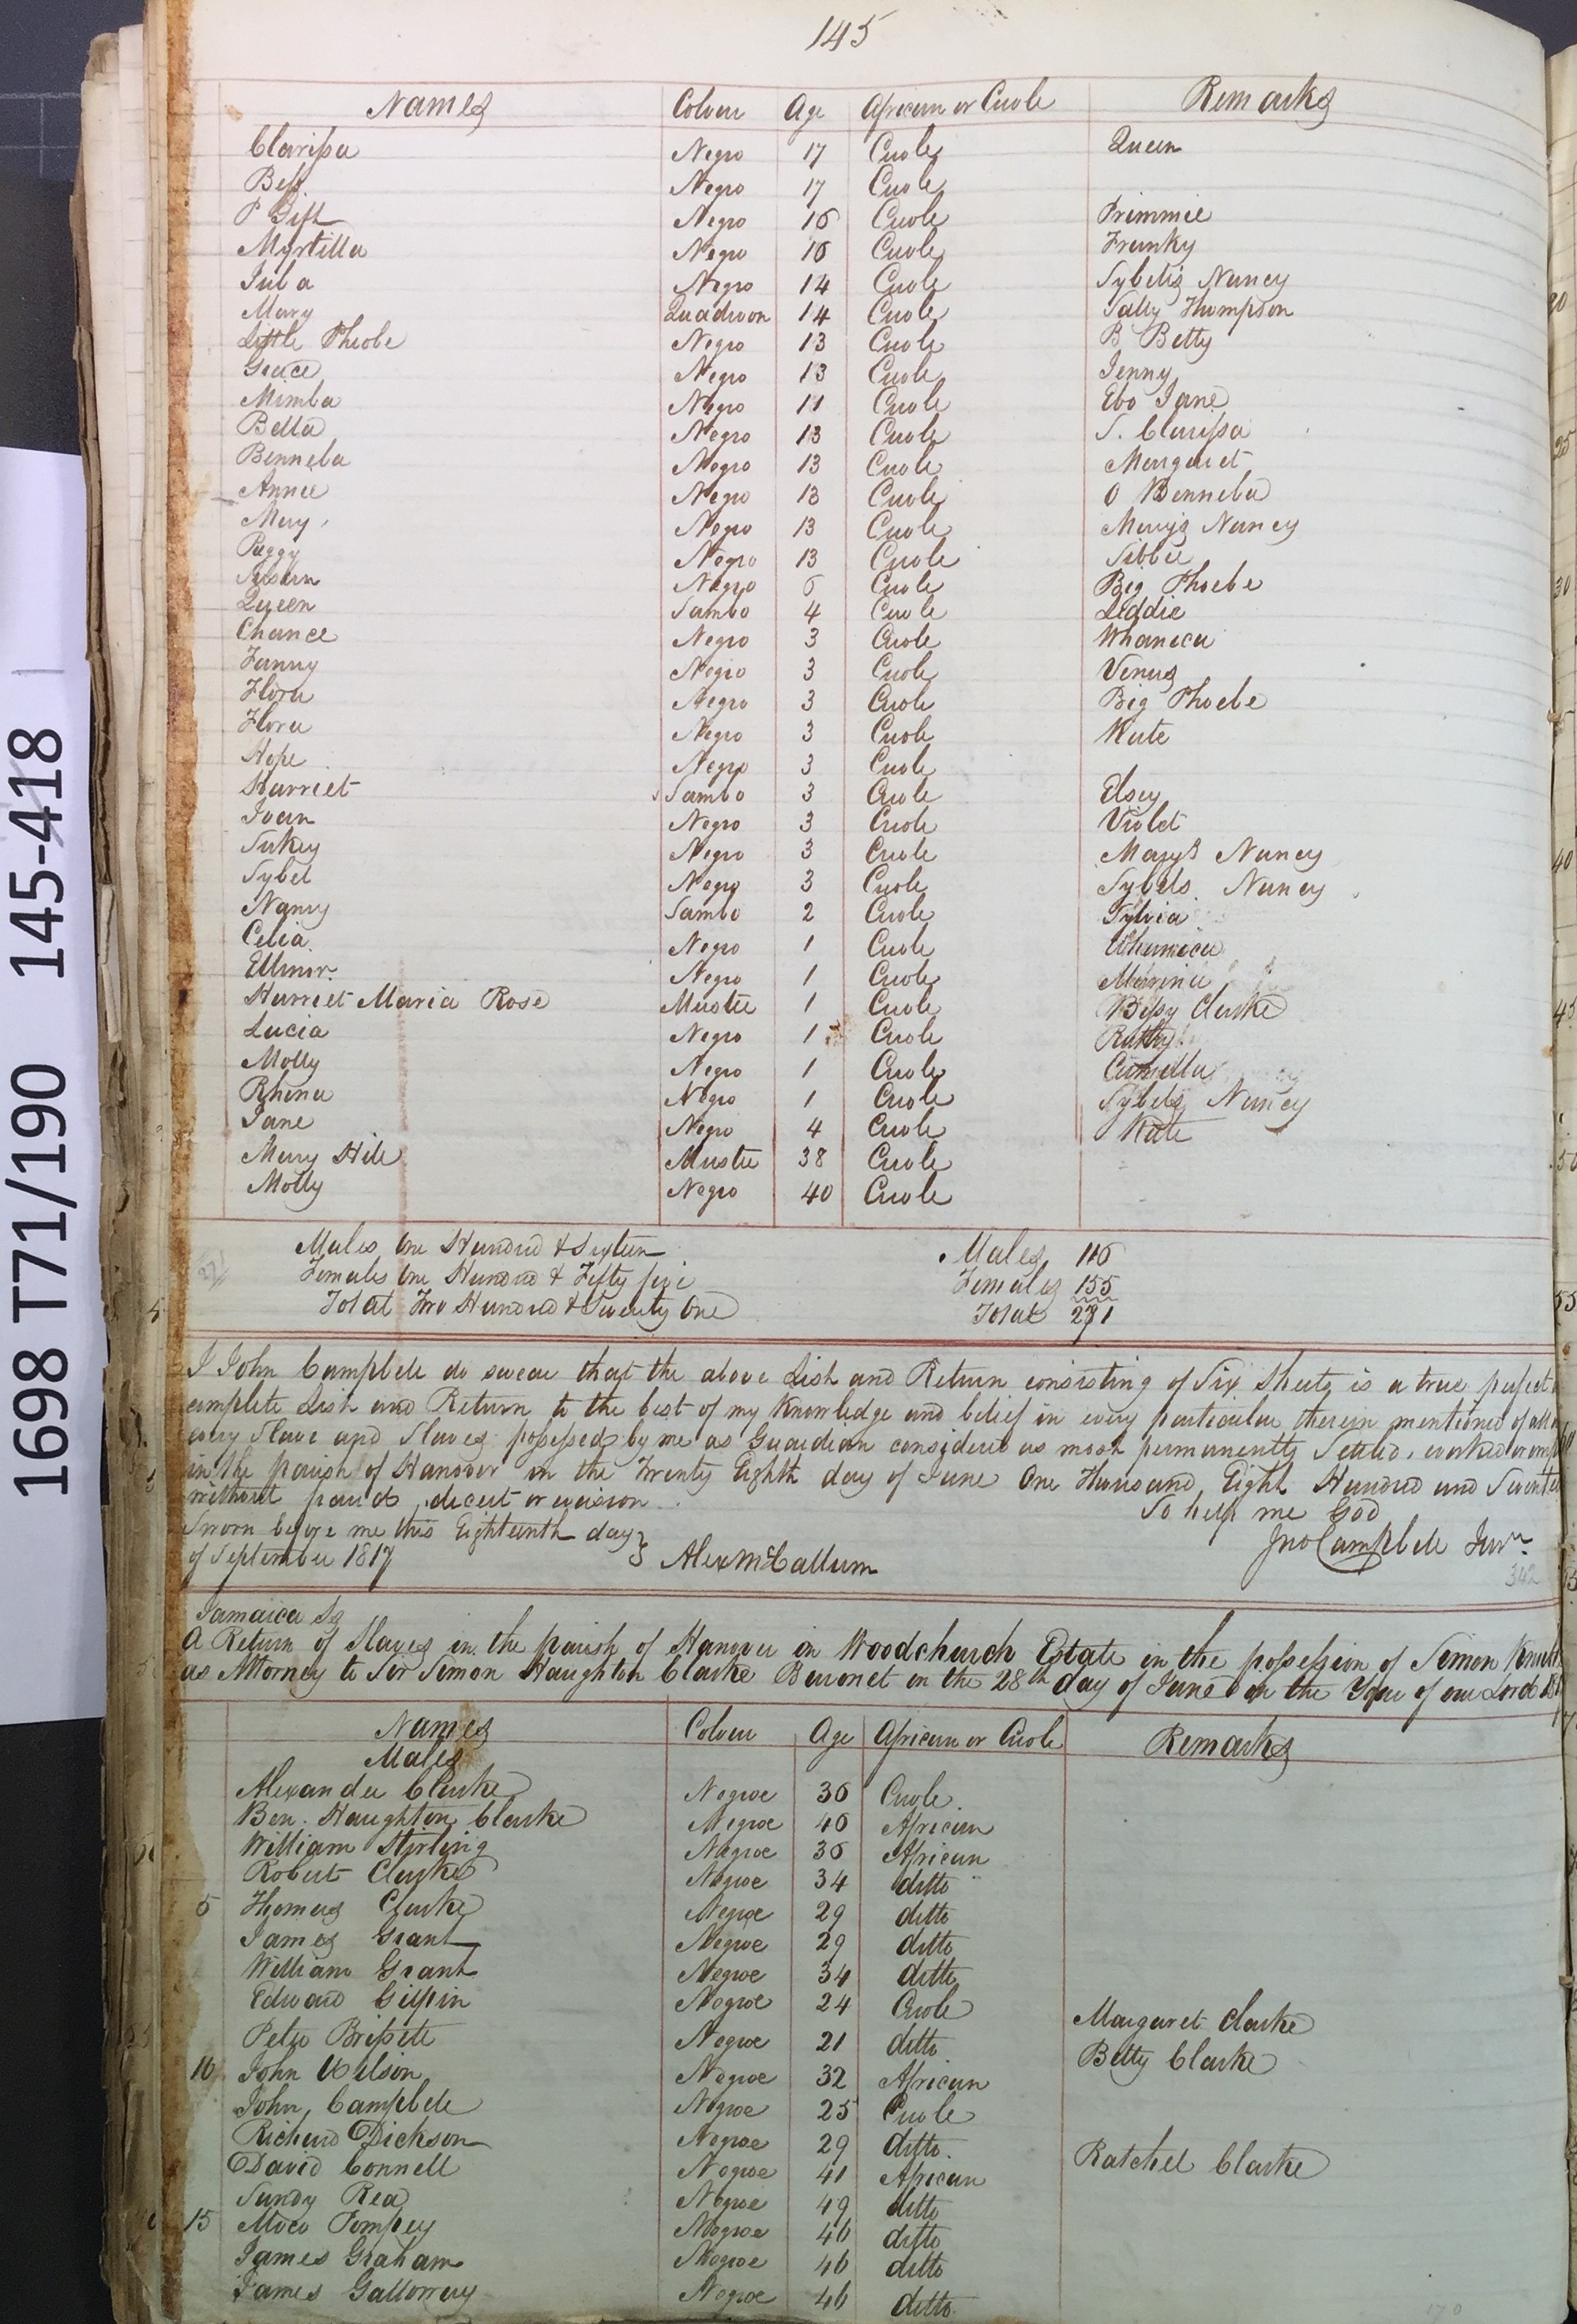 145
Names Colour Age African or Creole Remarks
Clarissa Negro 17 Creole Queen
Bess Negro 17 Creole
P Gift Negro 16 Creole Primmie
Myrtilla Negro 16 Creole Franky
Juba Negro 14 Creole Sybels Nancy
Mary Quadroon 14 Creole Sally Thompson
Little Pheobe Negro 13 Creole B Betty
Grace Negro 13 Creole Jenny
Mimba Negro 11 Creole Ebo Jane
Bella Negro 13 Creole S. Clarissa
Benneba Negro 13 Creole Margaret
Annie Negro 13 Creole O Benneba
Mary Negro 13 Creole Mary's Nancy
Peggy Negro 13 Creole Sibbie
Susan Negro 6 Creole Big Phoebe
Queen Sambo 4 Creole Leddie
Chance Negro 3 Creole Whanica
Fanny Negro 3 Creole Venus
Flora Negro 3 Creole Big Phoebe
Flora Negro 3 Creole Kate
Hope Negro 3 Creole
Harriet Sambo 3 Creole Elsey
Joan Negro 3 Creole Violet
Sukey Negro 3 Creole Mary's Nancy
Sybel Negro 3 Creole Sybels Nancy
Nancy Sambo 2 Creole Sylvia
Celia Negro 1 Creole Whanica
Ellinor Negro 1 Creole Marina
Harriet Maria Rose Mustee 1 Creole Bessy Clarke
Lucia Negro 1 Creole
Molly Negro 1 Creole Camilla
Rhena Negro 1 Creole Sybels Nancy
Jane Negro 4 Creole Kate
Mary Hile Mustee 38 Creole
Molly Negro 40 Creole
Males One Hundred & Sixteen Males 116
Females One Hundred & Fifty five Females 155
Total Two Hundred & Seventy One Total 271
I John Campbell do swear that the above List and Return consisting of Six Sheets is a true perfect
complete List and Return to the best of my Knowledge and belief in every particular therein mentioned of all
every Slave and Slaves possessed by me as Guardian considered as most permanently Settled, worked or
in the parish of Hanover on the Twenty Eighth day of June One Thousand Eight Hundred and
without fraud, deceit or evasion So help me God
Sworn before me this Eighteenth day Jno Campbell Junr.
of September 1817 Alex McCallum
342
Jamaica Ss
A Return of Slaves in the parish of Hanover in Woodchurch Estate in the possession of Simon
as Attorney to Sir Simon Haughton Clarke Baronet on the 28th day of June in the Year of our Lord
Names Colour Age African or Creole Remarks
Males
Alexander Clarke Negroe 36 Creole
Ben. Haughton Clarke Negroe 46 African
William Stirling Negroe 36 African
Robert Clarke Negroe 34 ditto
5 Thomas Clarke Negroe 29 ditto
James Grant Negroe 29 ditto
William Grant Negroe 34 ditto
Edward Gilpin Negroe 24 Creole Margaret Clarke
Peter Brissett Negroe 21 ditto Betty Clarke
10 John Wilson Negroe 32 African
John Campbell Negroe 25 Creole
Richard Dickson Negroe 29 ditto Ratchel Clarke
David Connell Negroe 41 African
Sandy Rea Negroe 49 ditto
15 Moco Pompey Negroe 46 ditto
James Graham Negroe 46 ditto
James Galloway Negroe 46 ditto
1698 T71/190 145-418